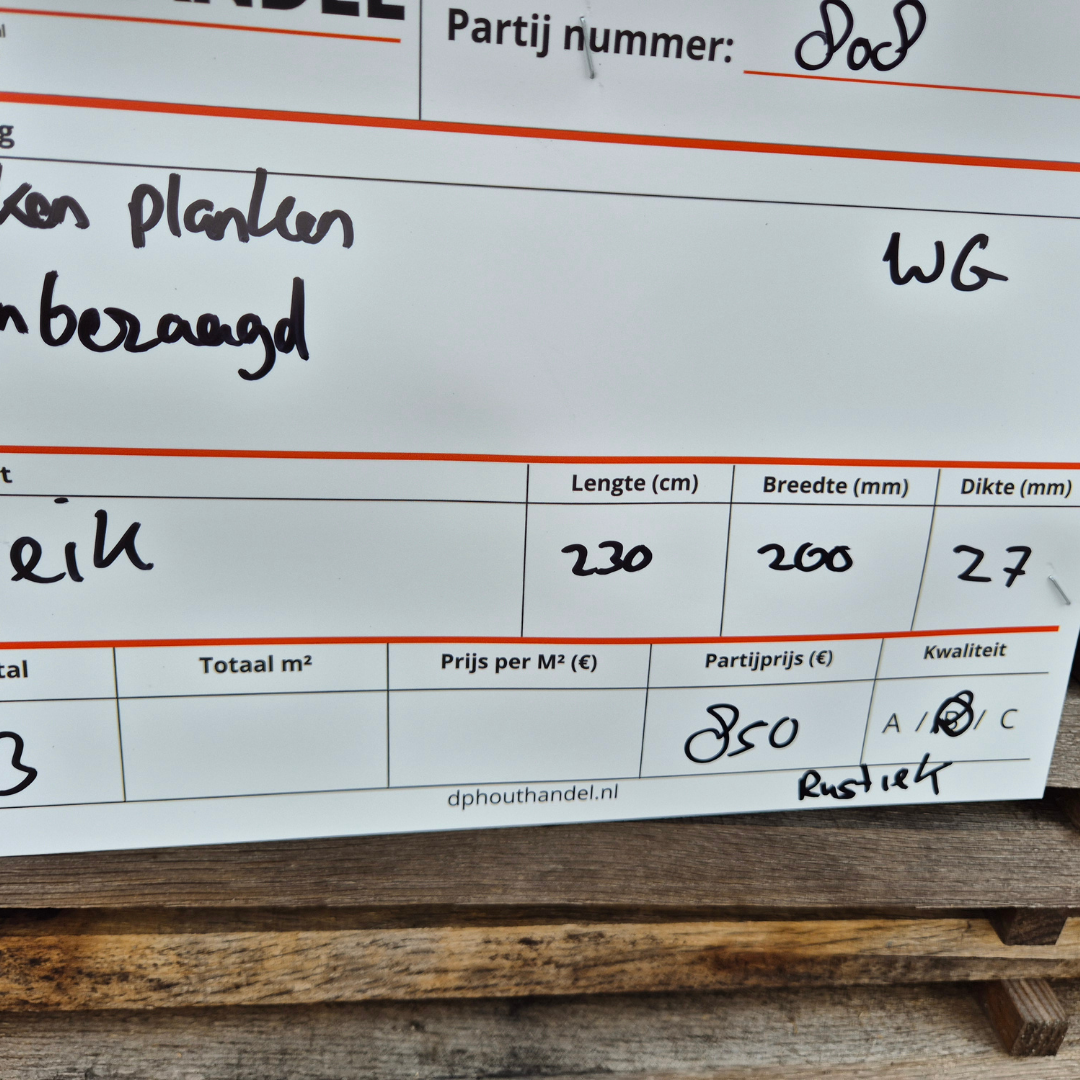 Partij nummer: 808
planken
WG
bezaagd
Lengte (cm) Breedte (mm) Dikte (mm)
eik 230 200 27
Totaal m² Prijs per M² (€) Partijprijs (€) Kwaliteit
3 850 A / B / C
Rustiek
dphouthandel.nl